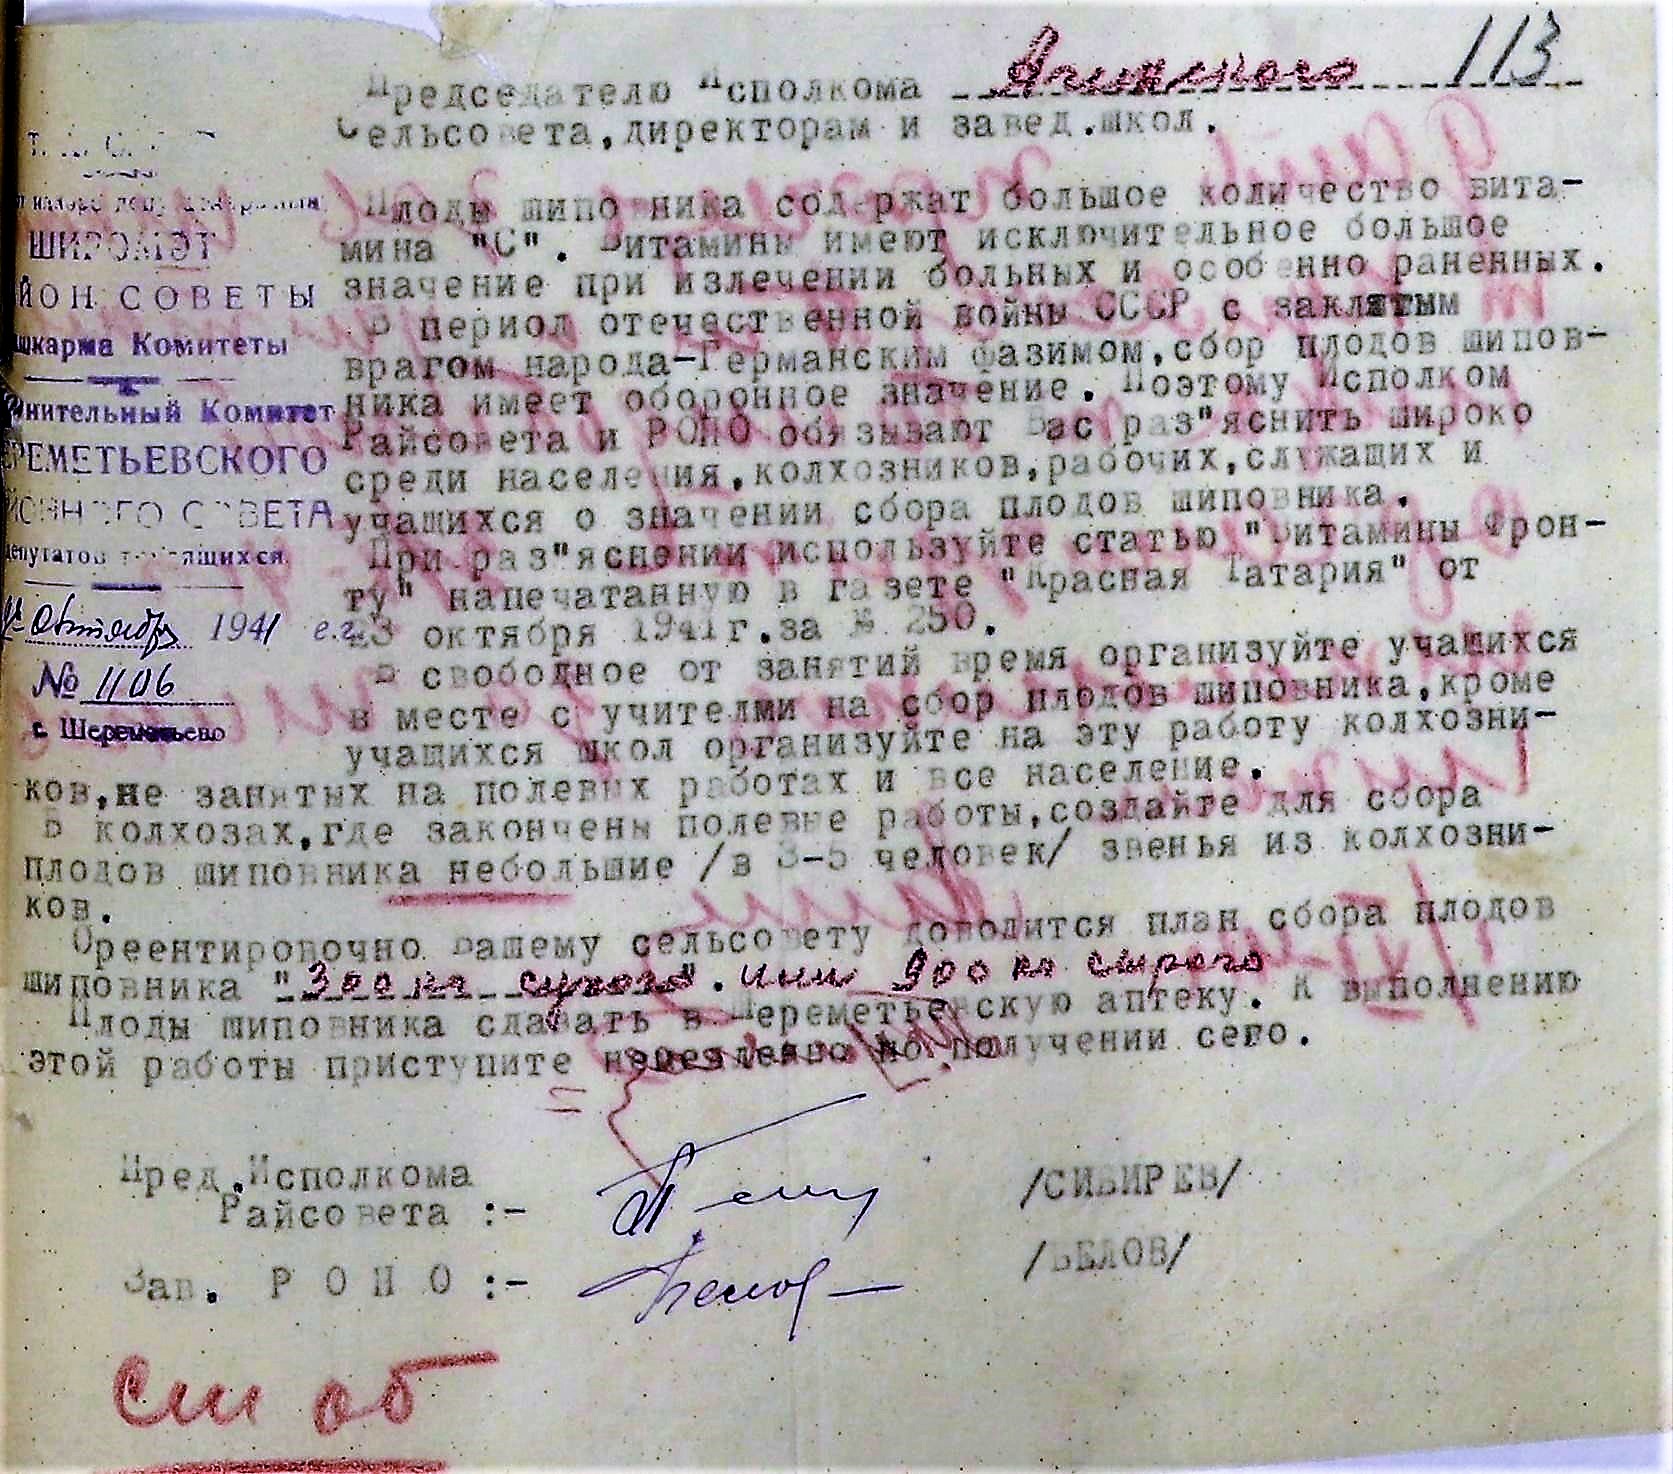 113
Председателю Исполкома
Сельсовета, директорам и завед.школ.
ШИРОМЭТ
ЙОН СОВЕТЫ
шкарма Комитеты
нительный Комитет
РЕМЕТЬЕВСКОГО
ЙОННОГО СОВЕТА
депутатов трудящихся
октября 1941 е.г.
№ 1106
с. Шереметьево
Плоды шиповника содержат большое количество вита-
мина "С". Витамины имеют исключительное большое
значение при излечении больных и особенно раненных.
В период отечественной войны СССР с заклятым
врагом народа-Германским фазимом, сбор плодов шипов-
ника имеет оборонное значение. Поэтому Исполком
Райсовета и РОНО обязывают Вас раз"яснить широко
среди населения, колхозников, рабочих, служащих и
учащихся о значении сбора плодов шиповника.
При раз"яснении используйте статью "Витамины Фрон-
ту" напечатанную в газете "Красная Татария" от
23 октября 1941г. за № 250.
В свободное от занятий время организуйте учащихся
в месте с учителми на сбор плодов шиповника, кроме
учащихся школ организуйте на эту работу колхозни-
ков, не занятых на полевых работах и все население.
В колхозах, где закончены полевые работы, создайте для сбора
плодов шиповника небольшие /в 3-5 человек/ звенья из колхозни-
ков.
Ореентировочно Вашему сельсовету доводится план сбора плодов
шиповника "300 кг сухого". или 900 кг сырого
Плоды шиповника сдавать в Шереметьевскую аптеку. К выполнению
этой работы приступите немедленно по получении сего.
Пред.Исполкома
Райсовета :- /СИБИРЕВ/
Зав. Р О Н О :- Белов /БЕЛОВ/
См об